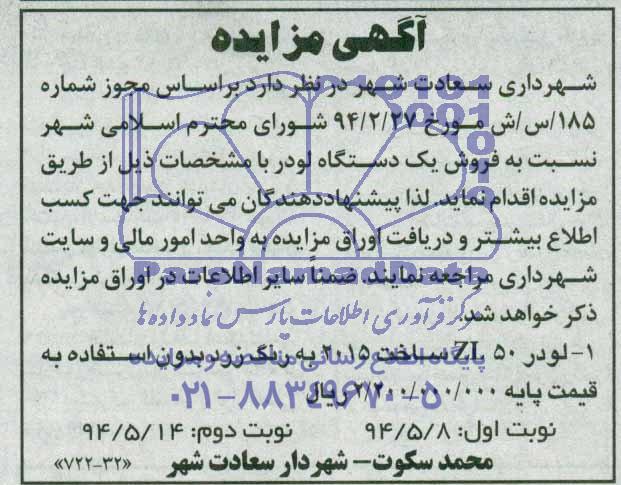 آگهی مزایده
شهرداری سعادت شهر در نظر دارد براساس مجوز شماره
۱۸۵/س/ش مورخ ۹۴/۲/۲۷ شورای محترم اسلامی شهر
نسبت به فروش یک دستگاه لودر با مشخصات ذیل از طریق
مزایده اقدام نماید. لذا پیشنهاددهندگان می توانند جهت کسب
اطلاع بیشتر و دریافت اوراق مزایده به واحد امور مالی و سایت
شهرداری مراجعه نمایند. ضمناً سایر اطلاعات در اوراق مزایده
ذکر خواهد شد.
مرکز فرآوری اطلاعات پارس نماد داده ها
۱- لودر ZL ۵۰ ساخت ۲۰۱۵ به رنگ زرد بدون استفاده به
قیمت پایه ۲/۲۰۰/۰۰۰/۰۰۰ ریال
۰۲۱-۸۸۳۴۹۶۷۰-۵
نوبت اول: ۹۴/۵/۸ نوبت دوم: ۹۴/۵/۱۴
محمد سکوت- شهردار سعادت شهر «۷۲۲-۳۲»